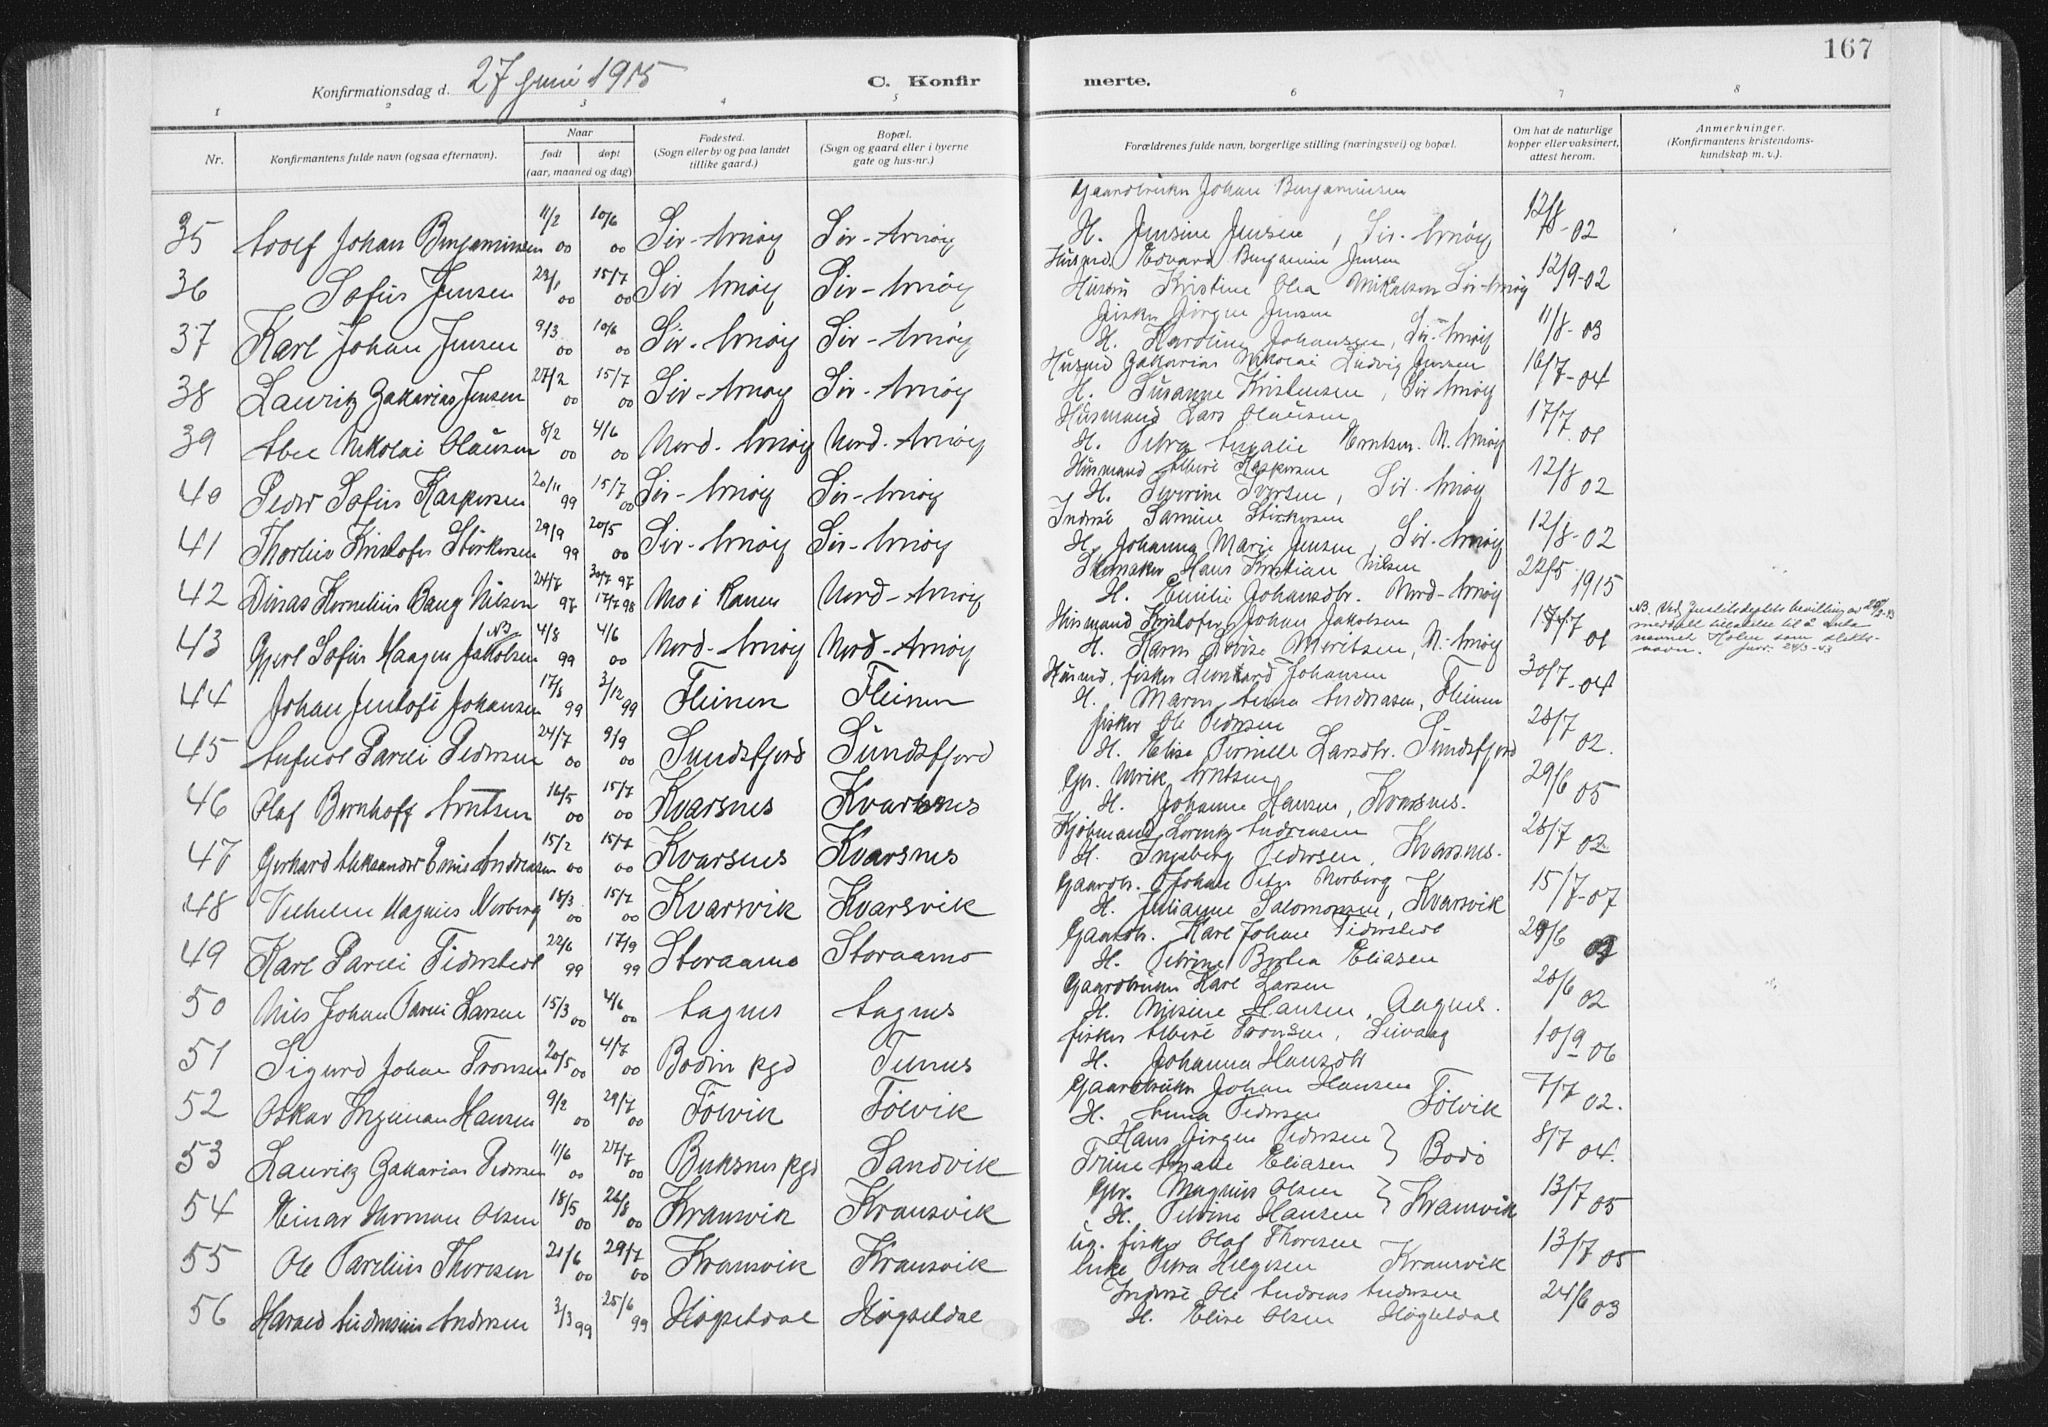 167
Konfirmationsdag d. 27 juni 1915
C. Konfirmerte.
1 2 3 4 5 6 7 8
Nr.
Konfirmantens fulde navn (ogsaa efternavn).
Naar
født døpt
(aar, maaned og dag)
Fødested.
(Sogn eller by og paa landet
tillike gaard.)
Bopæl.
(Sogn og gaard eller i byerne
gate og hus-nr.)
Forældrenes fulde navn, borgerlige stilling (næringsvei) og bopæl.
Om hat de naturlige
kopper eller vaksinert,
attest herom.
Anmerkninger.
(Konfirmantens kristendoms-
kundskap m. v.).
Gaardbruker Johan Benjaminsen
35 Adolf Johan Benjaminsen 11/2 00 10/6 00 Sør-Arnøy Sør-Arnøy H. Jensine Jensen, Sør-Arnøy 12/8-02
Husmd. Edvard Benjamin Jensen
36 Sofus Jensen 15/7 00 Sør Arnøy Sør-Arnøy Hustru Kristine Olea Mikalsen Sør-Arnøy 12/9-02
Fisker Jørgen Jensen
37 Karl Johan Jensen 9/3 00 10/6 00 Sør-Arnøy Sør-Arnøy H. Karoline Johansen, Sør-Arnøy 11/8-03
Husmd Zakarias Nikolai Ludvig Jensen
38 Lauritz Zakarias Jensen 27/2 00 15/7 00 Sør-Arnøy Sør-Arnøy H. Susanne Kristensen, Sør Arnøy 16/7-04
Husmand Lars Olausen
39 Nikolai Olausen 8/2 00 4/6 00 Nord-Arnøy Nord-Arnøy H. Petra Amalie Berntsen. N. Arnøy 17/7 01
Husmand Albert Kaspersen
40 Peder Sofus Kaspersen 20/11 99 15/7 00 Sør-Arnøy Sør-Arnøy H. Severine Iversen, Sør-Arnøy 12/8 02
Inderst Størkersen
41 Thorleif Kristofer Størkersen 29/9 99 20/5 00 Sør-Arnøy Sør-Arnøy H. Johanna Marie Jensen, Sør-Arnøy 12/8-02
Skomaker Hans Kristian Nilsen
42 Dinas Kornelius Bang Nilsen 24/7 97 30/7 97 17/7 98 Mo i Ranen Nord-Arnøy H. Emilie Johansdtr. Nord-Arnøy 22/5 1915
Husmand Kristofer Johan Jakobsen
43 Gjert Sofus Haagen Jakobsen NB 4/8 99 4/6 00 Nord-Arnøy Nord-Arnøy H. Karen Lovise Moritsen, N. Arnøy 17/7 01
NB. Ved Justitsdeptets bevilling av
meddelt tilladelse til å anta
navnet Holm som slekts-
navn. Jnr. 24/3-43
Husmd. fisker Leonhard Johansen
44 Johan Jentoft Johansen 17/8 99 3/12 99 Fleinen Fleinen H. Maren Anna Andreasen, Fleinen 30/7-04
fisker Ole Pedersen
45 Pareli Pedersen 24/7 00 9/9 00 Sundsfjord Sundsfjord H. Elise Pernille Larsdtr. Sundsfjord 28/7 02.
Gbr. Ulrik Arntsen
46 Olaf Bernhoff Arntsen 16/5 00 15/7 00 Kvarsnes Kvarsnes H. Johanne Hansen, Kvarsnes. 29/6 05
Kjøbmand Lorentz Andreasen
47 Gerhard Aleksander Andreasen 15/2 00 15/7 00 Kvarsnes Kvarsnes H. Ingeborg Pedersen, Kvarsnes. 28/7 02
Gaardbr. Johan Peter Norberg
48 Vilhelm Magnus Norberg 18/3 00 15/7 00 Kvarsvik Kvarsvik H. Julianne Salomonsen, Kvarsvik 15/7-07
Gaardbr. Karl Johan Tiderstedt
49 Karl Pareli Tiderstedt 22/6 99 17/9 99 Storaamo Storaamo H. Petrine Bertea Eliasen
Gaardbruker Karl Larsen
50 Nils Johan Pareli Larsen 15/3 00 4/6 00 Aagnes Aagnes H. Nilsine Hansen, Aagnes. 28/6 02
fisker Albert Tronsen, Leivaag
51 Sigurd Johan Tronsen 20/5 00 4/7 00 Bodin pgd Tennes H. Johanna Hansdtr 10/9 06
Gaardbruker Johan Hansen
52 Oskar Ingeman Hansen 9/2 00 29/7 00 Følvik Følvik H. Anna Pedersen Følvik 7/7 02.
Hans Jørgen Pedersen
53 Lauritz Zakarias Pedersen 11/6 00 27/7 00 Buksnes pgd Sandvik Trine Amalie Eliasen Bodø 8/7 04.
Gbr. Magnus Olsen
54 Einar Herman Olsen 18/5 00 26/8 00 Kransvik Kransvik H. Petrine Hansen Kransvik 13/7 05
ug. fisker Olaf Thoresen
55 Ole Parelius Thoresen 21/6 00 29/7 00 Kransvik Kransvik Petra Helgesen Kransvik 13/7 05
Inderst Ole Andreas Andersen
56 Harald Andersen 3/3 99 25/6 99 Høgsetdal Høgsetdal H. Elise Olsen Høgsetdal 24/6 03